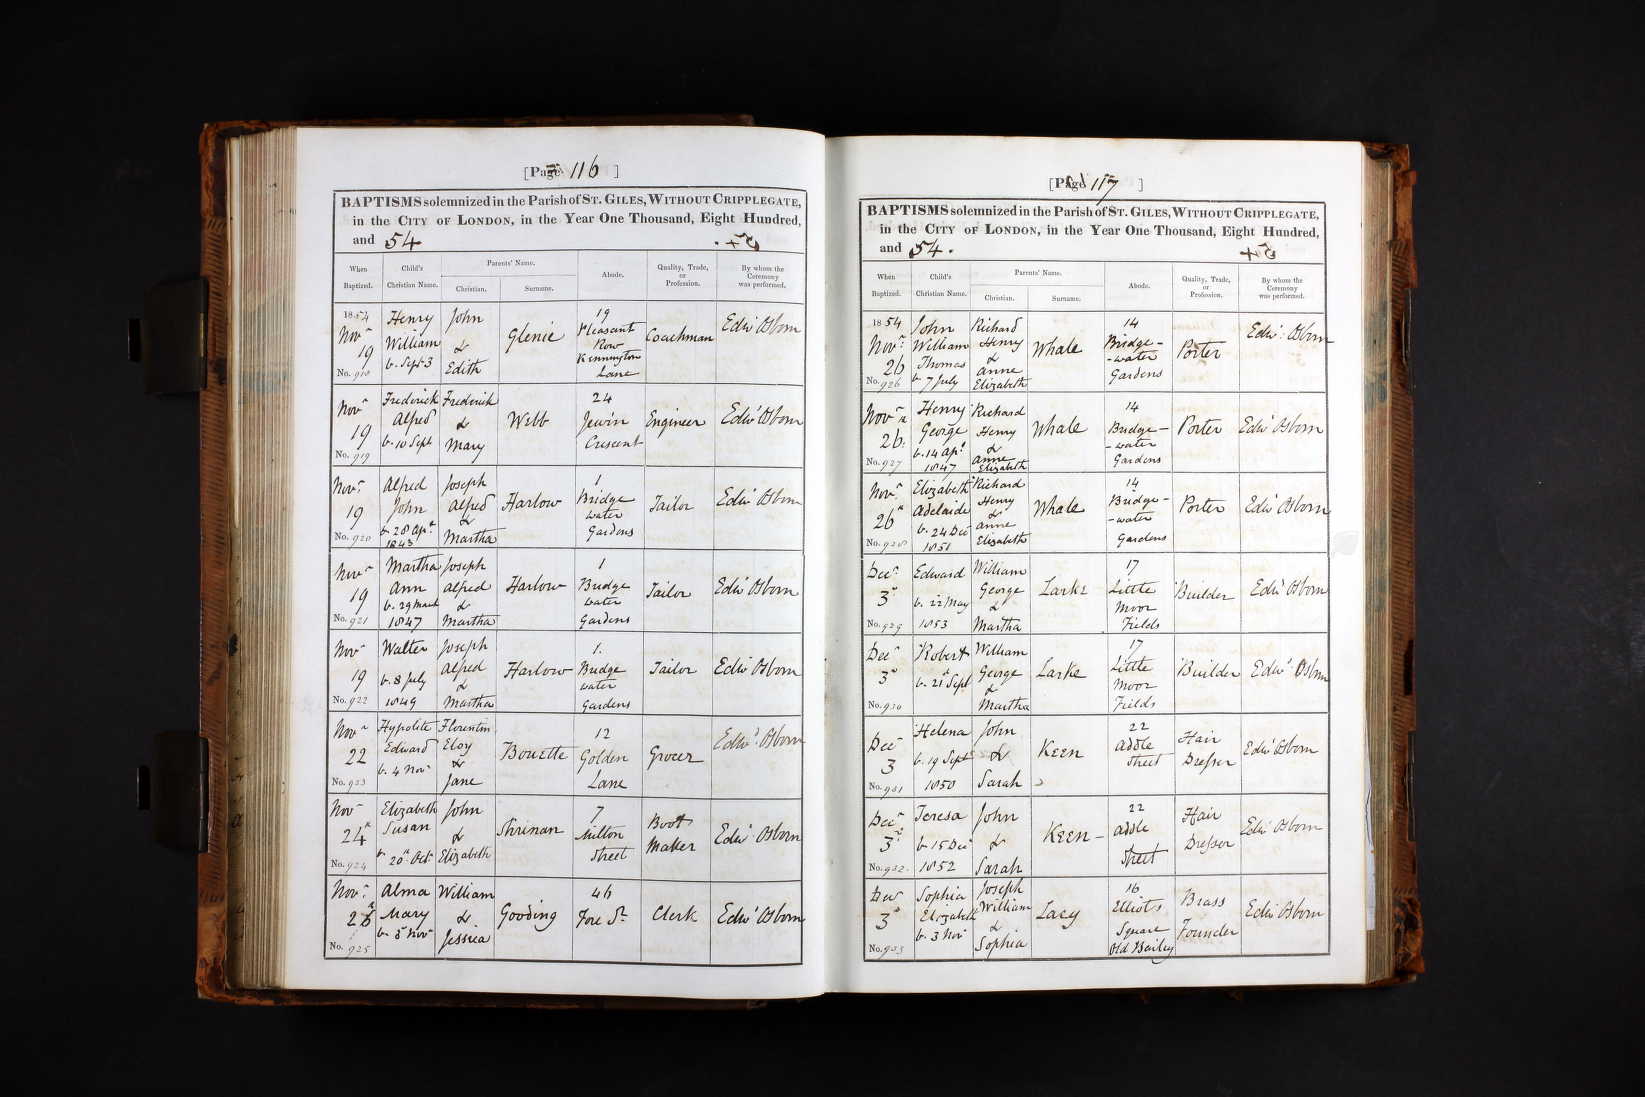 [Page 116 ]
BAPTISMS solemnized in the Parish of ST. GILES, WITHOUT CRIPPLEGATE,
in the CITY OF LONDON, in the Year One Thousand, Eight Hundred,
and 54
When Baptized. Child's Christian Name. Parents' Name. Christian. Surname. Abode. Quality, Trade, or Profession. By whom the Ceremony was performed.
1854 Novr 19 No. 918 Henry William b. Sept 3 John & Edith Glenie 19 Pleasant Row Kennington Lane Coachman Edwd Osborn
Novr 19 No. 919 Frederick Alfred b. 10 Sept Frederick & Mary Webb 24 Jewin Crescent Engineer Edwd Osborn
Novr 19 No. 920 Alfred John b. 28 Apl 1843 Joseph Alfred & Martha Harlow 1 Bridge water Gardens Tailor Edwd Osborn
Novr 19 No. 921 Martha Ann b. 29 March 1847 Joseph Alfred & Martha Harlow 1 Bridge water Gardens Tailor Edwd Osborn
Novr 19 No. 922 Walter b. 8 July 1849 Joseph Alfred & Martha Harlow 1. Bridge water Gardens Tailor Edwd Osborn
Novr 22 No. 923 Hypolite Edward b. 4 Novr Florentin Eloy & Jane Bouette 12 Golden Lane Grocer Edwd Osborn
Novr 24 No. 924 Elizabeth Susan b. 20 Octr John & Elizabeth 7 Milton Street Boot Maker Edwd Osborn
Novr 26 No. 925 Alma Mary b. 5 Novr William & Jessica Gooding 46 Fore St. Clerk Edwd Osborn
[Page 117 ]
BAPTISMS solemnized in the Parish of ST. GILES, WITHOUT CRIPPLEGATE,
in the CITY OF LONDON, in the Year One Thousand, Eight Hundred,
and 54.
When Baptized. Child's Christian Name. Parents' Name. Christian. Surname. Abode. Quality, Trade, or Profession. By whom the Ceremony was performed.
1854 Novr 26 No. 926 John William Thomas b. 7 July Richard Henry & Anne Elizabeth Whale 14 Bridge- -water Gardens Porter Edwd Osborn
Novr 26 No. 927 Henry George b. 14 Apl 1847 Richard Henry & Anne Elizabeth Whale 14 Bridge- -water Gardens Porter Edwd Osborn
Novr 26 No. 928 Elizabeth Adelaide b. 24 Dec 1851 Richard Henry & Anne Elizabeth Whale 14 Bridge- -water Gardens Porter Edwd Osborn
Decr 3 No. 929 Edward b. 22 May 1853 William George & Martha Larke 17 Little Moor Fields Builder Edwd Osborn
Decr 3 No. 930 Robert b. 21 Sept William George & Martha Larke 17 Little Moor Fields Builder Edwd Osborn
Decr 3 No. 931 Helena b. 19 Sept 1850 John & Sarah Keen 22 Addle Street Hair Dresser Edwd Osborn
Decr 3 No. 932. Teresa b. 15 Decr 1852 John & Sarah Keen 22 Addle Street Hair Dresser Edwd Osborn
Decr 3 No. 933 Sophia Elizabeth b. 3 Novr Joseph William & Sophia Lacy 16 Elliots Square Old Bailey Brass Founder Edwd Osborn